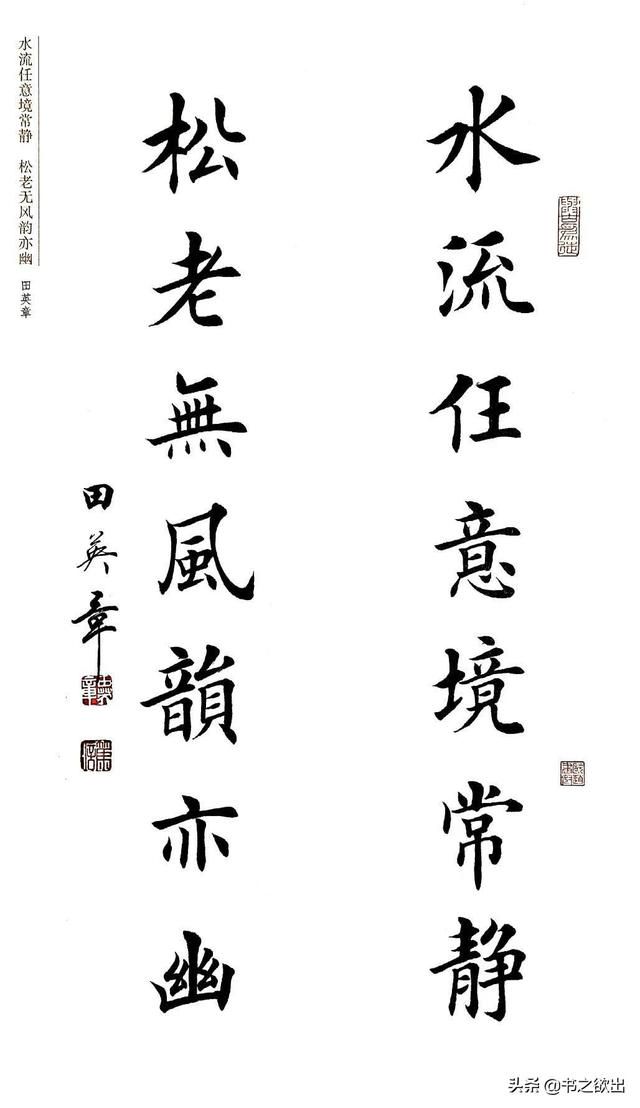 水流任意境常静
松老無風韻亦幽
田英章
水流任意境常静　松老无风韵亦幽
田英章
头条 @书之欲出